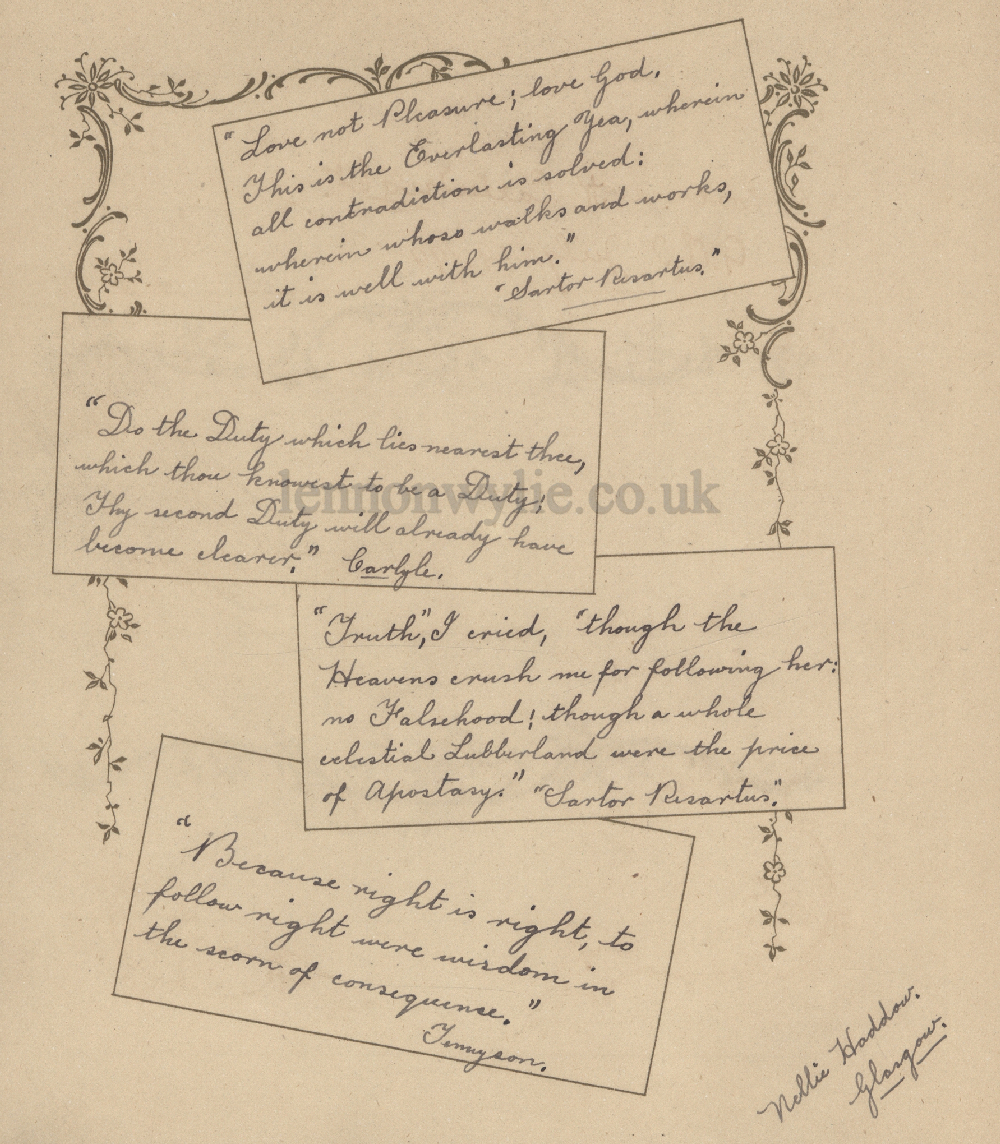 "Love not Pleasure; love God.
This is the Everlasting Yea, wherein
all contradiction is solved:
wherein whoso walks and works,
it is well with him."
"Sartor Resartus."
"Do the Duty which lies nearest thee,
which thou knowest to be a Duty!
Thy second Duty will already have
become clearer." Carlyle.
lennonwylie.co.uk
"Truth", I cried, "though the
Heavens crush me for following her:
no Falsehood! though a whole
celestial Lubberland were the price
of Apostasy." "Sartor Resartus".
"Because right is right, to
follow right were wisdom in
the scorn of consequence."
Tennyson.
Nellie Haddow.
Glasgow.